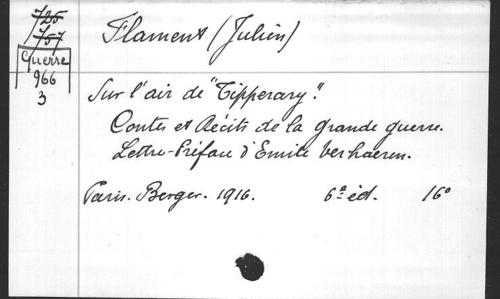 725
757
Guerre
966
3
Flament (Julien)
Sur l'air de "Tipperary".
Contes et Récits de la grande guerre.
Lettre-Préface d'Emile Verhaeren.
Paris. Berger. 1916. 6e éd. 16°